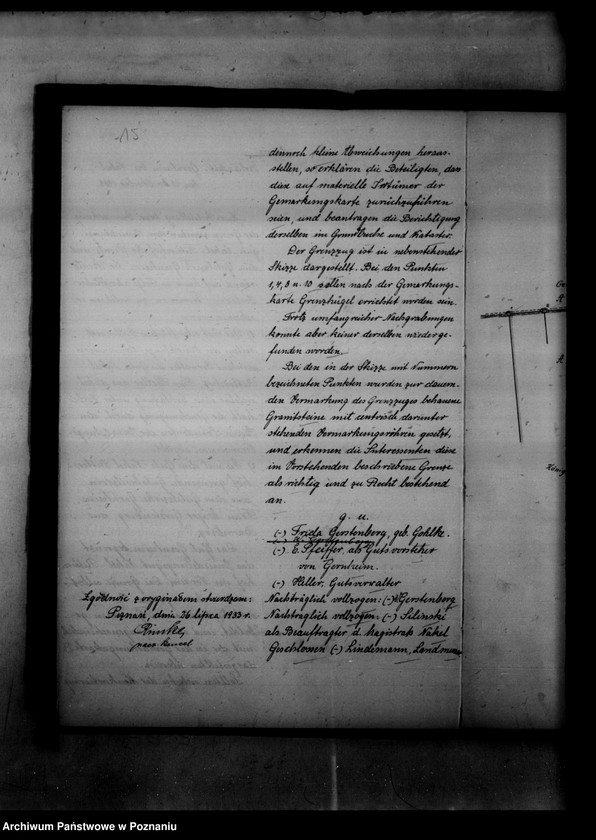 15
dennoch kleine Abweichungen heraus-
stellen, so erklären die Beteiligten, dass
diese auf materielle Irrtümer der
Gemarkungskarte zurückzuführen
seien, und beantragen die Berichtigung
derselben im Grundbuche und Kataster.
Der Grenzzug ist in nebenstehender
Skizze dargestellt. Bei den Punkten
1, 4, 8 u. 10 sollen nach der Gemarkungs-
karte Grenzhügel errichtet worden sein.
Trotz umfangreicher Nachgrabungen
konnte aber keiner derselben wiederge-
funden worden.
Bei den in der Skizze mit Nummern
bezeichneten Punkten wurden zur dauern-
den Vermarkung des Grenzzuges behauene
Granitsteine mit centrisch darunter
stehenden Vermarkungsröhren gesetzt,
und erkennen die Interessenten diese
im Vorstehenden beschriebene Grenze
als richtig und zu Recht bestehend
an.
g. u.
(-) Frida Gerstenberg, geb. Gohlke.
(-) C. Pfeiffer, als Gutsvorsteher
von Gernheim.
(-) Heller, Gutsverwalter
Nachträglich vollzogen: (-) Gerstenberg
Nachträglich vollzogen: (-) Selinski
als Beauftragter d. Magistrats Nakel
Geschlossen (-) Lindemann, Landmesser
Zgodność z oryginałem stwierdzam:
Poznań, dnia 26 lipca 1933 r.
Archiwum Państwowe w Poznaniu